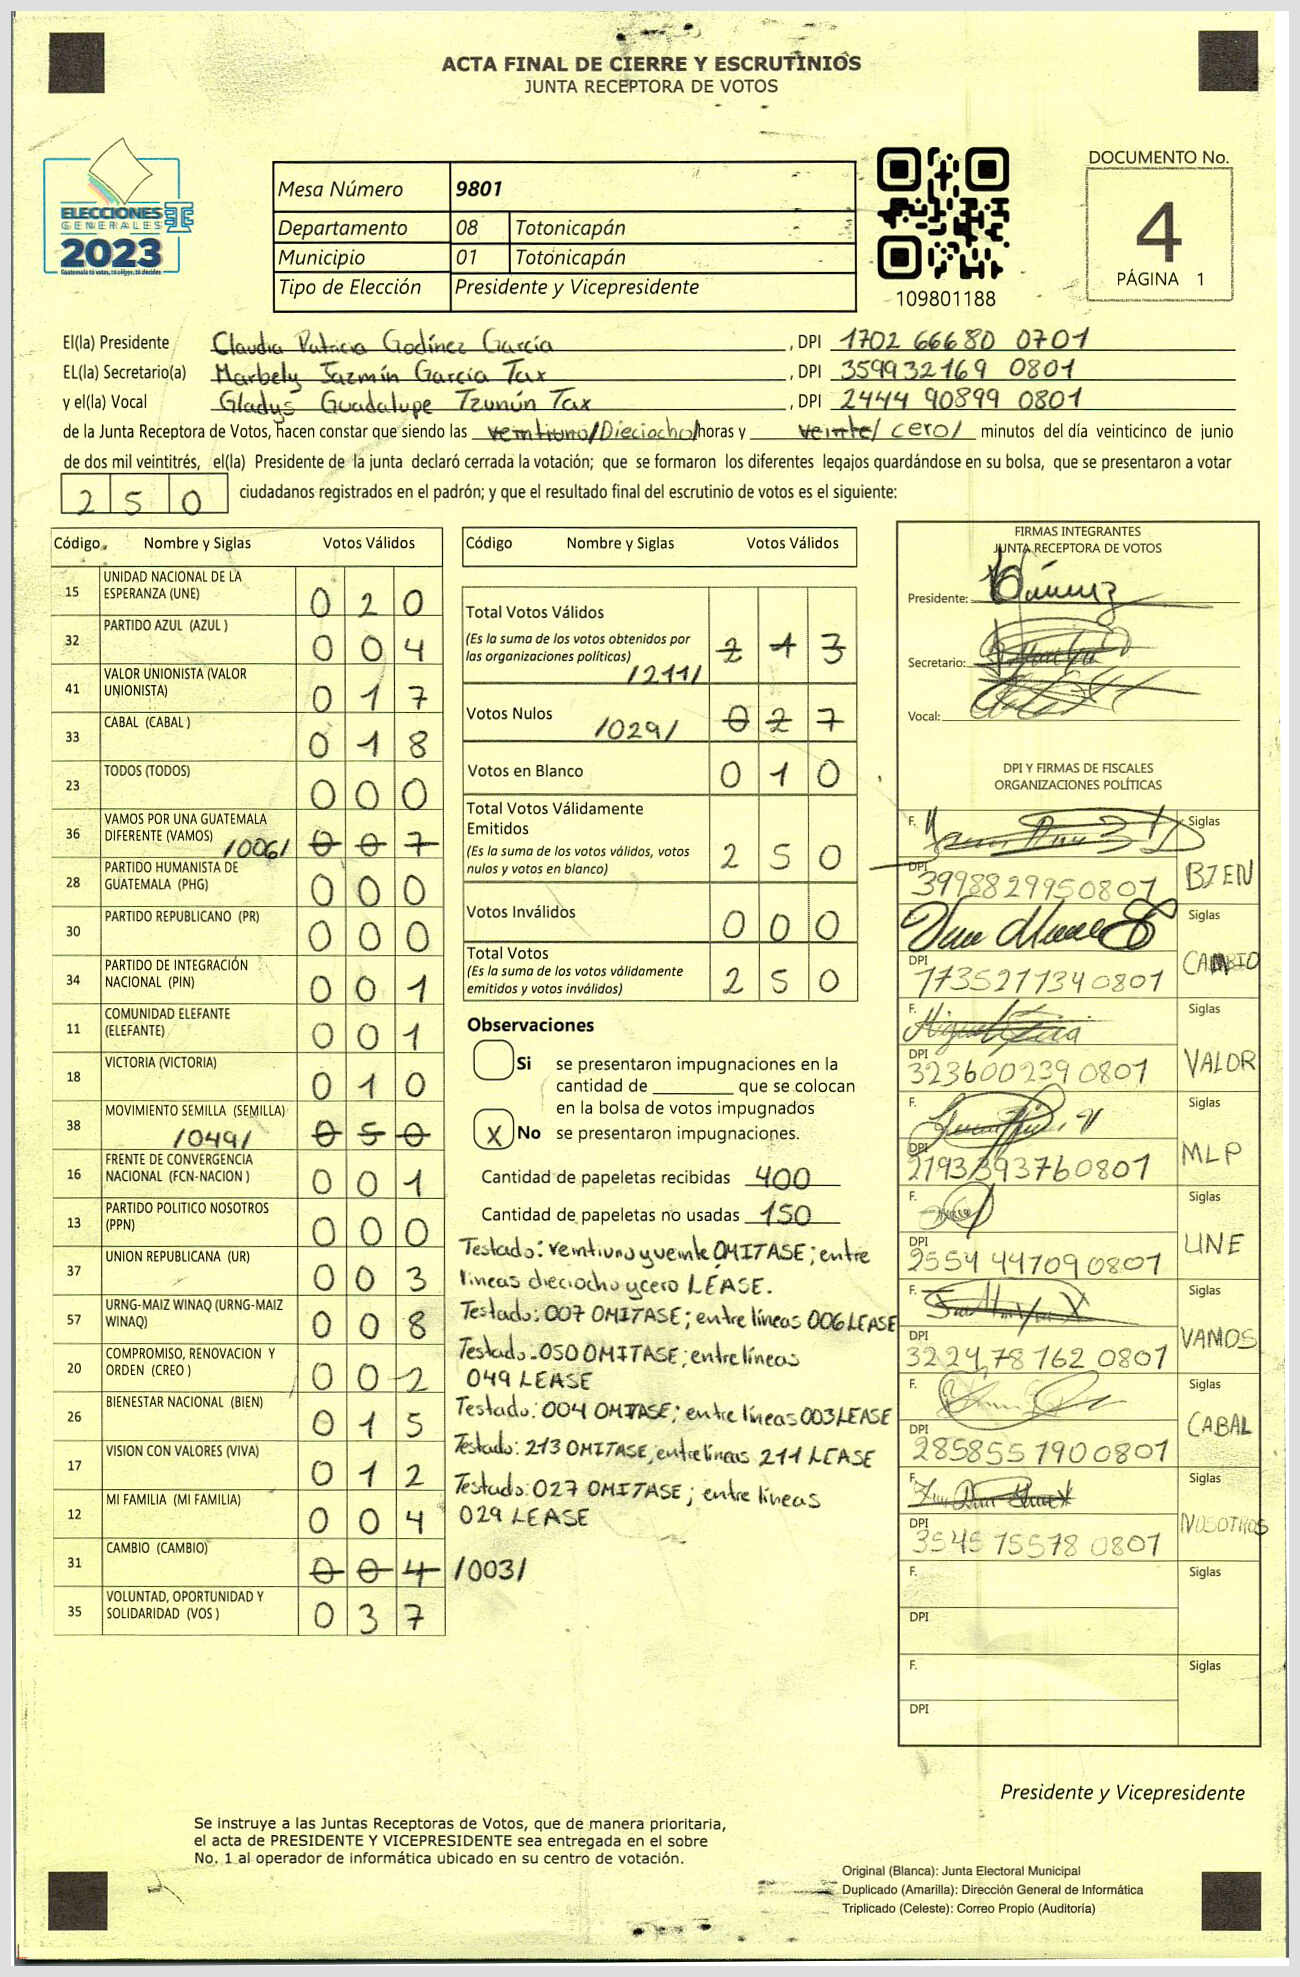 ACTA FINAL DE CIERRE Y ESCRUTINIOS
JUNTA RECEPTORA DE VOTOS
ELECCIONES
GENERALES
2023
Guatemala tú votas, tú eliges, tú decides
Mesa Número 9801
Departamento 08 Totonicapán
Municipio 01 Totonicapán
Tipo de Elección Presidente y Vicepresidente
109801188
DOCUMENTO No.
4
PÁGINA 1
El(la) Presidente Claudia Patricia Godínez García , DPI 1702 66680 0701
EL(la) Secretario(a) Marbely Jazmín García Tax , DPI 359932169 0801
y el(la) Vocal Gladys Guadalupe Tzunún Tax , DPI 2444 90899 0801
de la Junta Receptora de Votos, hacen constar que siendo las veintiuno/Dieciocho/horas y veinte/ cero/ minutos del día veinticinco de junio
de dos mil veintitrés, el(la) Presidente de la junta declaró cerrada la votación; que se formaron los diferentes legajos guardándose en su bolsa, que se presentaron a votar
250 ciudadanos registrados en el padrón; y que el resultado final del escrutinio de votos es el siguiente:
Código Nombre y Siglas Votos Válidos
15 UNIDAD NACIONAL DE LA
ESPERANZA (UNE) 0 2 0
32 PARTIDO AZUL (AZUL ) 0 0 4
41 VALOR UNIONISTA (VALOR
UNIONISTA) 0 1 7
33 CABAL (CABAL ) 0 1 8
23 TODOS (TODOS) 0 0 0
36 VAMOS POR UNA GUATEMALA
DIFERENTE (VAMOS) /006/ 0 0 7
28 PARTIDO HUMANISTA DE
GUATEMALA (PHG) 0 0 0
30 PARTIDO REPUBLICANO (PR) 0 0 0
34 PARTIDO DE INTEGRACIÓN
NACIONAL (PIN) 0 0 1
11 COMUNIDAD ELEFANTE
(ELEFANTE) 0 0 1
18 VICTORIA (VICTORIA) 0 1 0
38 MOVIMIENTO SEMILLA (SEMILLA)
/049/ 0 5 0
16 FRENTE DE CONVERGENCIA
NACIONAL (FCN-NACION ) 0 0 1
13 PARTIDO POLITICO NOSOTROS
(PPN) 0 0 0
37 UNION REPUBLICANA (UR) 0 0 3
57 URNG-MAIZ WINAQ (URNG-MAIZ
WINAQ) 0 0 8
20 COMPROMISO, RENOVACION Y
ORDEN (CREO ) 0 0 2
26 BIENESTAR NACIONAL (BIEN) 0 1 5
17 VISION CON VALORES (VIVA) 0 1 2
12 MI FAMILIA (MI FAMILIA) 0 0 4
31 CAMBIO (CAMBIO) 0 0 4 /003/
35 VOLUNTAD, OPORTUNIDAD Y
SOLIDARIDAD (VOS ) 0 3 7
Código Nombre y Siglas Votos Válidos
Total Votos Válidos
(Es la suma de los votos obtenidos por
las organizaciones políticas) 2 1 3
/211/
Votos Nulos /029/ 0 2 7
Votos en Blanco 0 1 0
Total Votos Válidamente
Emitidos
(Es la suma de los votos válidos, votos
nulos y votos en blanco) 2 5 0
Votos Inválidos 0 0 0
Total Votos
(Es la suma de los votos válidamente
emitidos y votos inválidos) 2 5 0
Observaciones
Si se presentaron impugnaciones en la
cantidad de ________ que se colocan
en la bolsa de votos impugnados
X No se presentaron impugnaciones.
Cantidad de papeletas recibidas 400
Cantidad de papeletas no usadas 150
Testado: veintiuno y veinte OMITASE; entre
lineas dieciocho y cero LÉASE.
Testado: 007 OMITASE; entre líneas 006 LEASE
Testado: 050 OMITASE; entre líneas
049 LEASE
Testado: 004 OMITASE; entre líneas 003 LEASE
Testado: 213 OMITASE, entre líneas 211 LEASE
Testado: 027 OMITASE; entre líneas
029 LEASE
FIRMAS INTEGRANTES
JUNTA RECEPTORA DE VOTOS
Presidente:
Secretario:
Vocal:
DPI Y FIRMAS DE FISCALES
ORGANIZACIONES POLÍTICAS
F. Siglas
DPI 3998829950801 BIEN
Siglas
DPI 1735271340801 CAMBIO
F. Siglas
DPI 3236002390801 VALOR
F. Siglas
DPI 2193393760801 MLP
F. Siglas
DPI 2554 44709 0801 UNE
F. Siglas
DPI 3224 78162 0801 VAMOS
F. Siglas
DPI 2858551900801 CABAL
F. Siglas
DPI 3545 75578 0801 NOSOTROS
F. Siglas
DPI
F. Siglas
DPI
Presidente y Vicepresidente
Se instruye a las Juntas Receptoras de Votos, que de manera prioritaria,
el acta de PRESIDENTE Y VICEPRESIDENTE sea entregada en el sobre
No. 1 al operador de informática ubicado en su centro de votación.
Original (Blanca): Junta Electoral Municipal
Duplicado (Amarilla): Dirección General de Informática
Triplicado (Celeste): Correo Propio (Auditoría)